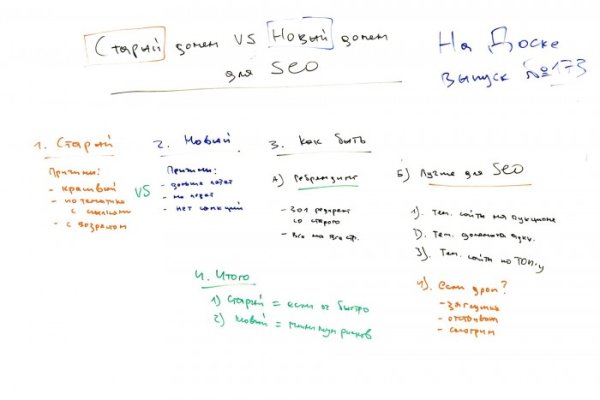 Старый домен VS Новый домен
для SEO
На Доске
выпуск №173
1. Старый
Причины:
- красивый
- по тематике
с ссылками
- с возрастом
VS
2. Новый
Причины:
- дольше
- нет санкций
3. Как быть
А) Ребрендинг
- 301 редирект
со старого
- Все на все стр.
Б) Лучше для SEO
1). Тем. сайты на аукционе
2). Тем. домены аукц.
3). Тем. сайты по ТОП-у
4). Если дроп?
- загрузка
- отстоялся
- смотрим
4. Итого
1) Старый = если ок быстро
2) Новый = минимум рисков